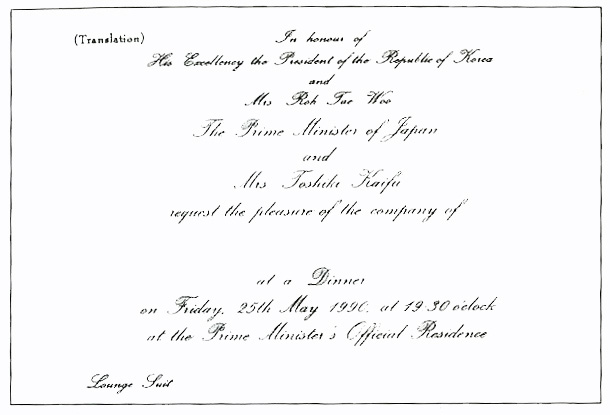 (Translation)
In honour of
His Excellency the President of the Republic of Korea
and
Mrs Roh Tae Woo
The Prime Minister of Japan
and
Mrs Toshiki Kaifu
request the pleasure of the company of
at a Dinner
on Friday, 25th May 1990, at 19.30 o'clock
at the Prime Minister's Official Residence
Lounge Suit